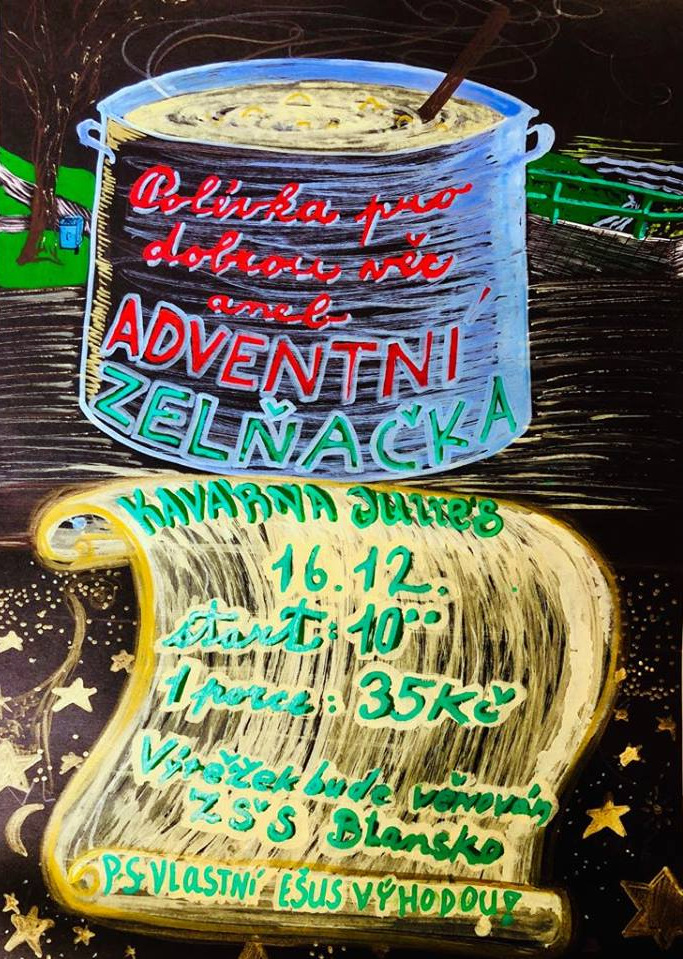 Polívka pro
dobrou věc
aneb
ADVENTNÍ
ZELŇAČKA
KAVÁRNA Julie's
16.12.
start: 10⁰⁰
1 porce: 35Kč
Výtěžek bude věnován
ZŠS Blansko
PS VLASTNÍ EŠUS VÝHODOU!